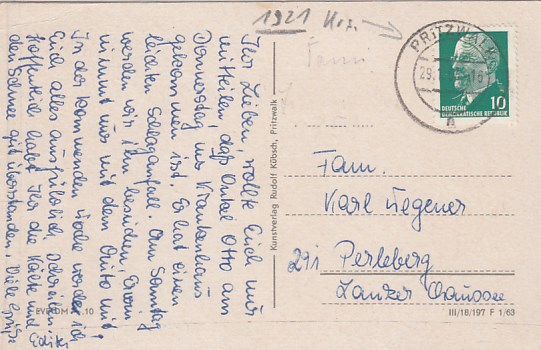 1921 Krs.
PRITZWALK
10
DEUTSCHE
DEMOKRATISCHE REPUBLIK
Ihr Lieben, wollte Euch nur
mitteilen, daß Onkel Otto am
Donnerstag ins Krankenhaus
gekommen ist. Er hat einen
leichten Schlaganfall. Am Samstag
werden wir ihn besuchen, Erwin
nimmt uns mit dem Auto mit!
In der kommenden Woche werde ich
Euch alles ausführlich schreiben.
Hoffentlich habt Ihr die Kälte und
den Schnee gut überstanden. Viele Grüße
Kunstverlag Rudolf Kübsch, Pritzwalk
Fam.
Fam.
Karl Tegener
291 Perleberg
Lanker Chaussee
10
III/18/197 F 1/63